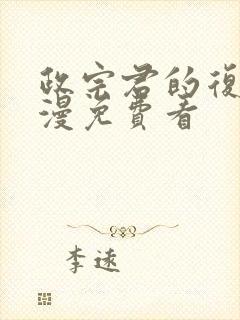 政宗君的復
漫免費看
李遠